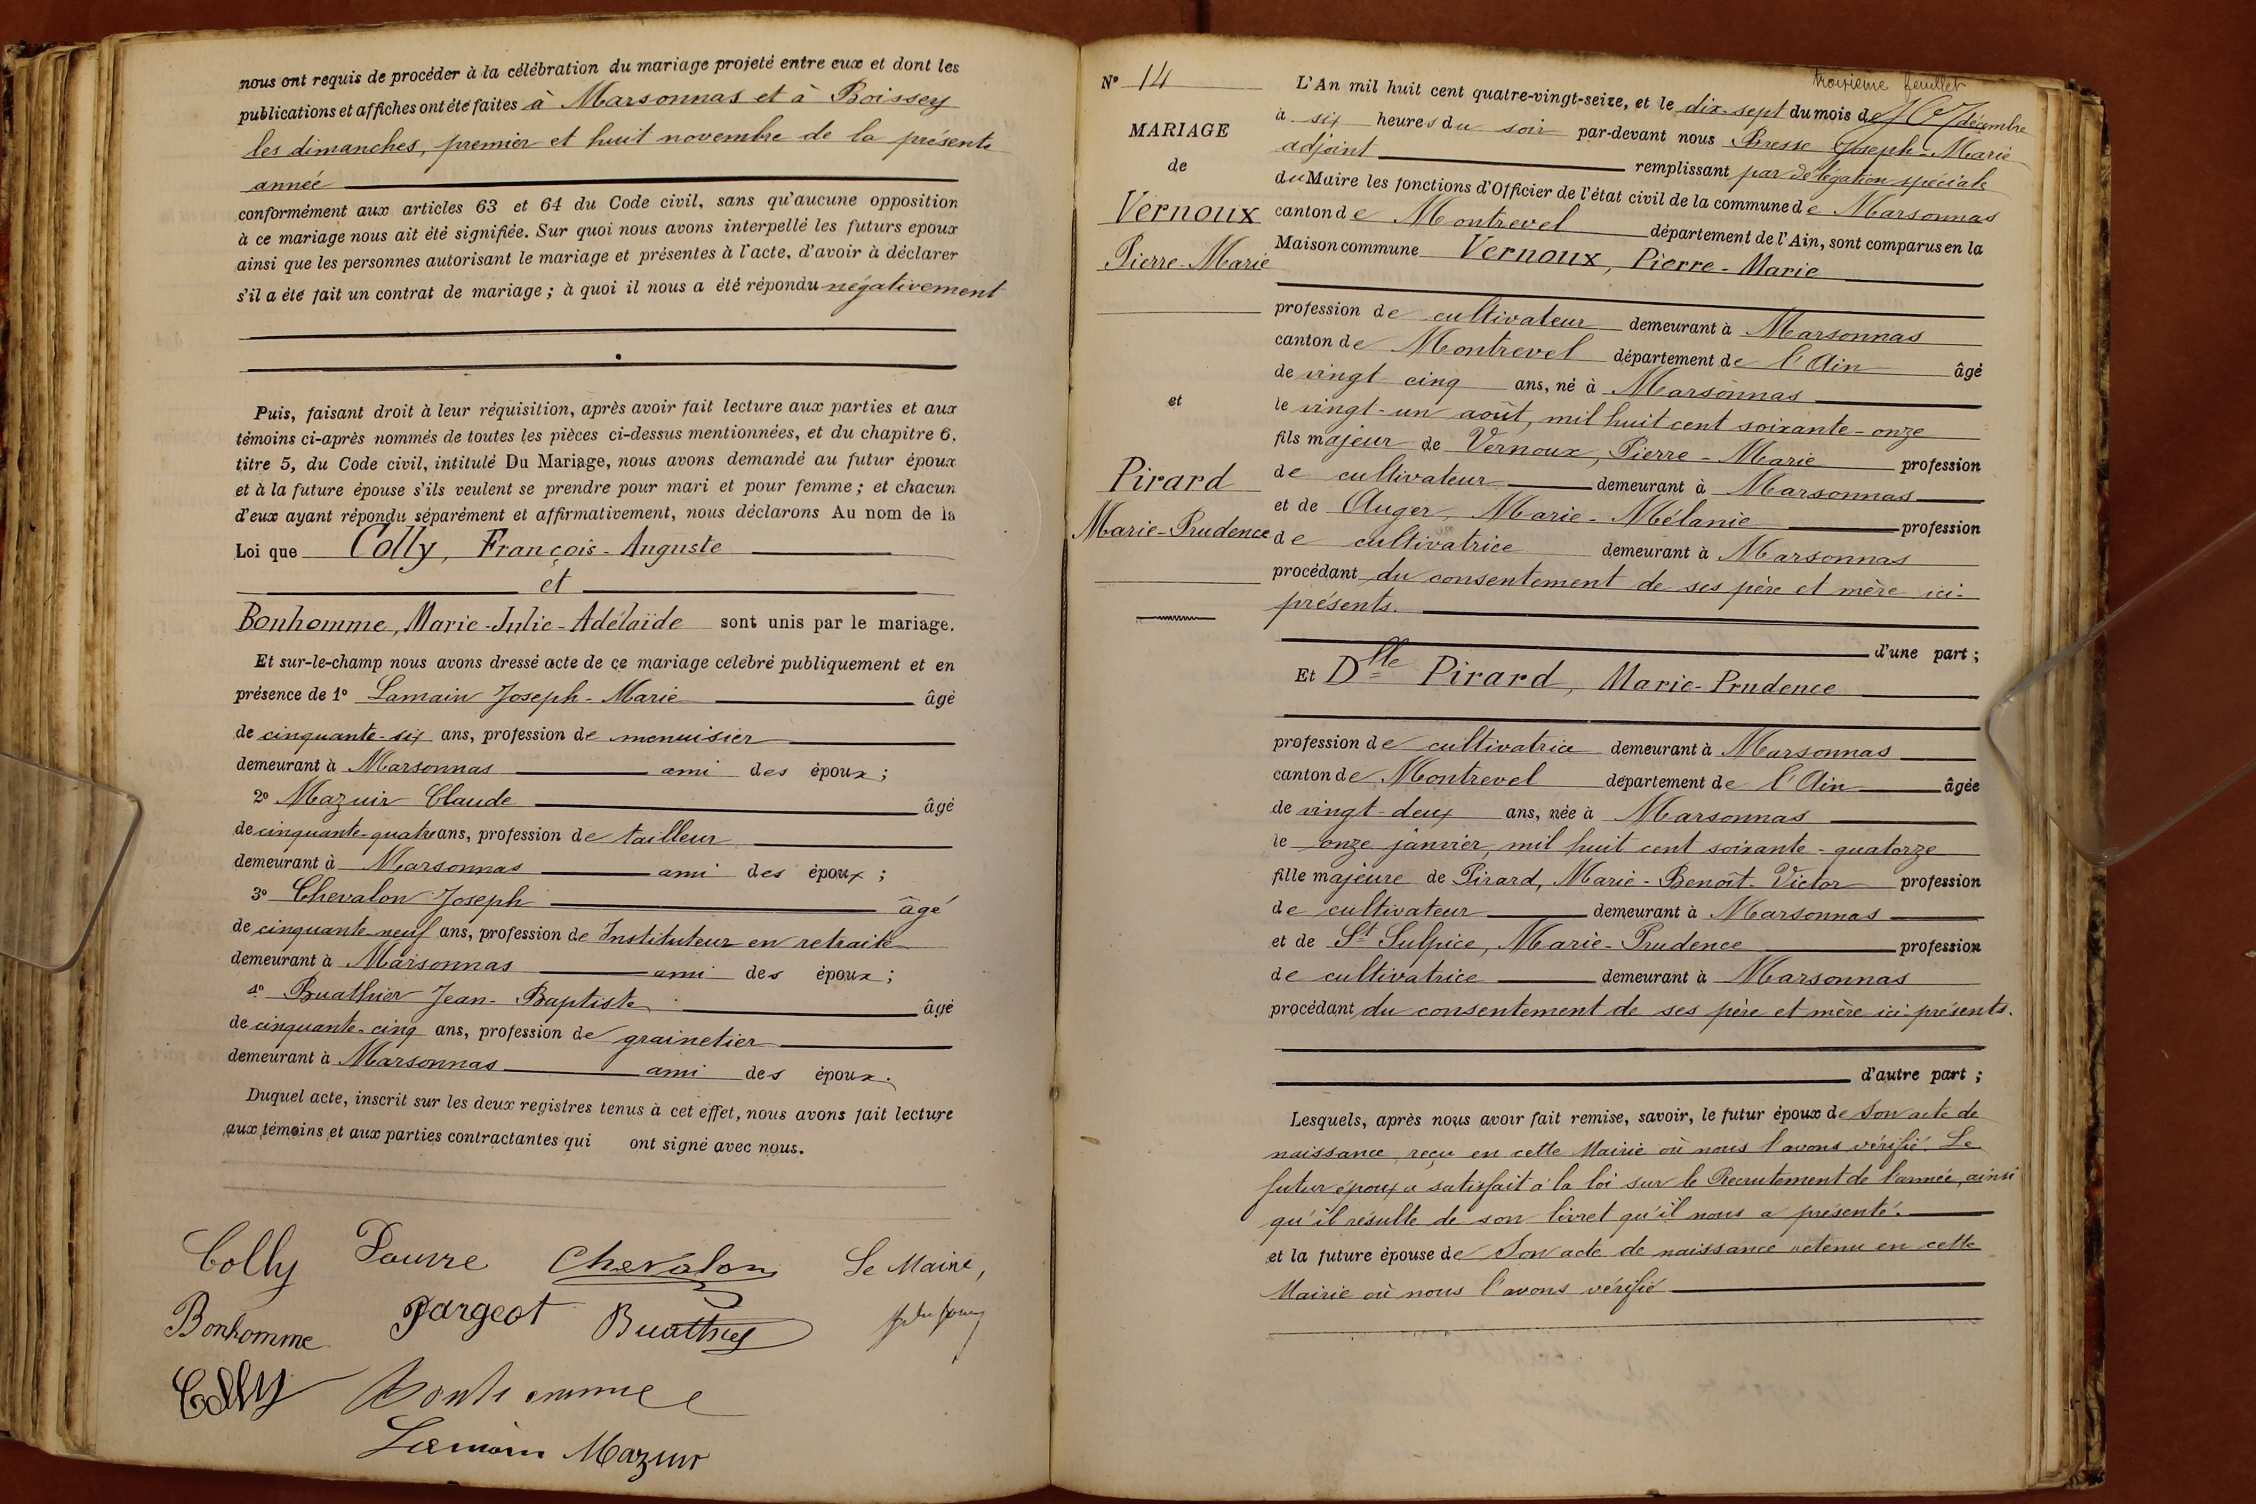 nous ont requis de procéder à la célébration du mariage projeté entre eux et dont les
publications et affiches ont été faites à Marsonnas et à Boissey
les dimanches, premier et huit novembre de la présente
année
conformément aux articles 63 et 64 du Code civil, sans qu'aucune opposition
à ce mariage nous ait été signifiée. Sur quoi nous avons interpellé les futurs époux
ainsi que les personnes autorisant le mariage et présentes à l'acte, d'avoir à déclarer
s'il a été fait un contrat de mariage ; à quoi il nous a été répondu négativement
Puis, faisant droit à leur réquisition, après avoir fait lecture aux parties et aux
témoins ci-après nommés de toutes les pièces ci-dessus mentionnées, et du chapitre 6,
titre 5, du Code civil, intitulé Du Mariage, nous avons demandé au futur époux
et à la future épouse s'ils veulent se prendre pour mari et pour femme ; et chacun
d'eux ayant répondu séparément et affirmativement, nous déclarons Au nom de la
Loi que Colly, François-Auguste
et
Bonhomme, Marie-Julie-Adélaïde sont unis par le mariage.
Et sur-le-champ nous avons dressé acte de ce mariage célébré publiquement et en
présence de 1º Lamain Joseph-Marie âgé
de cinquante-six ans, profession de menuisier
demeurant à Marsonnas ami des époux ;
2º Mazuir Claude âgé
de cinquante-quatre ans, profession de tailleur
demeurant à Marsonnas ami des époux ;
3º Chevalon Joseph âgé
de cinquante neuf ans, profession de Instituteur en retraite
demeurant à Marsonnas ami des époux ;
4º Buathier Jean-Baptiste âgé
de cinquante-cinq ans, profession de grainetier
demeurant à Marsonnas ami des époux.
Duquel acte, inscrit sur les deux registres tenus à cet effet, nous avons fait lecture
aux témoins et aux parties contractantes qui ont signé avec nous.
Colly Pauvre Chevalon Le Maire,
Bonhomme Pargeot Buathier
Colly Bonhomme
Lamain Mazuir
troisième feuillet
Nº 14
MARIAGE
de
Vernoux
Pierre-Marie
et
Pirard
Marie-Prudence
L'An mil huit cent quatre-vingt-seize, et le dix-sept du mois de décembre
à six heures du soir par-devant nous Bresse Joseph-Marie
adjoint remplissant par délégation spéciale
du Maire les fonctions d'Officier de l'état civil de la commune de Marsonnas
canton de Montrevel département de l'Ain, sont comparus en la
Maison commune Vernoux, Pierre-Marie
profession de cultivateur demeurant à Marsonnas
canton de Montrevel département de l'Ain âgé
de vingt cinq ans, né à Marsonnas
le vingt-un août, mil huit cent soixante-onze
fils majeur de Vernoux, Pierre-Marie profession
de cultivateur demeurant à Marsonnas
et de Auger, Marie-Mélanie profession
de cultivatrice demeurant à Marsonnas
procédant du consentement de ses père et mère ici-
présents.
d'une part ;
Et Dlle Pirard, Marie-Prudence
profession de cultivatrice demeurant à Marsonnas
canton de Montrevel département de l'Ain âgée
de vingt-deux ans, née à Marsonnas
le onze janvier, mil huit cent soixante-quatorze
fille majeure de Pirard, Marie-Benoît-Victor profession
de cultivateur demeurant à Marsonnas
et de St Sulpice, Marie-Prudence profession
de cultivatrice demeurant à Marsonnas
procédant du consentement de ses père et mère ici-présents.
d'autre part ;
Lesquels, après nous avoir fait remise, savoir, le futur époux de Son acte de
naissance reçu en cette Mairie où nous l'avons vérifié. Le
futur époux a satisfait à la loi sur le Recrutement de l'armée, ainsi
qu'il résulte de son livret qu'il nous a présenté.
et la future épouse de Son acte de naissance retenu en cette
Mairie où nous l'avons vérifié